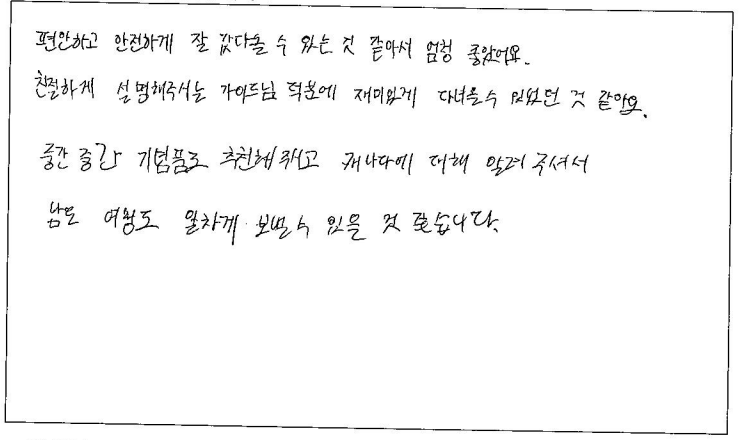 편안하고 안전하게 잘 갔다올 수 있는 것 같아서 엄청 좋았어요.
친절하게 설명해주시는 가이드님 덕분에 재미있게 다녀올수 있었던 것 같아요.
중간 중간 기념품도 추천해주시고 캐나다에 대해 알려주셔서
남은 여행도 알차게 보낼 수 있을 것 같습니다.